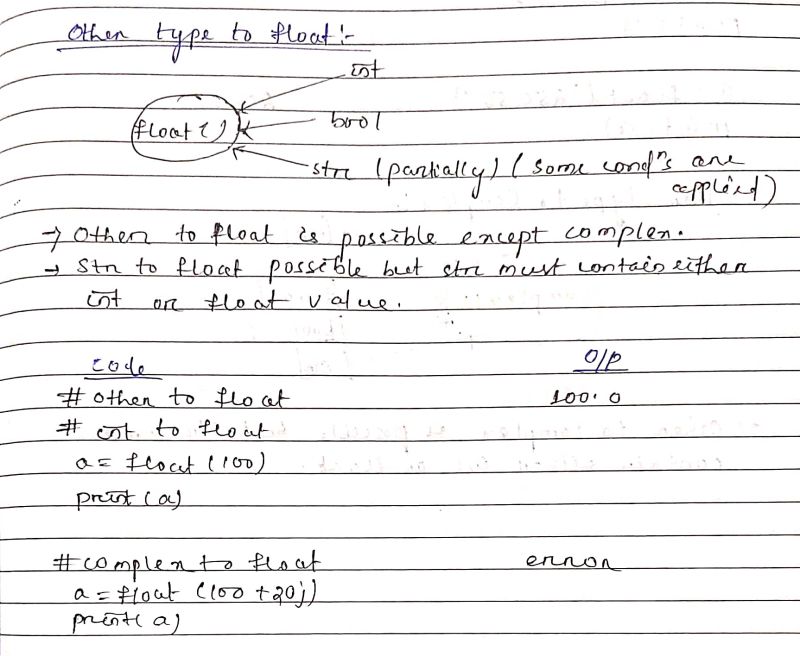 Other type to float :-
int
float() bool
str (partially) (some condⁿs are
applied)
→ Other to float is possible except complex.
→ Str to float possible but str must contain either
int or float value.
code O/P
# other to float 100.0
# int to float
a = float (100)
print (a)
# complex to float error
a = float (100 + 20j)
print (a)